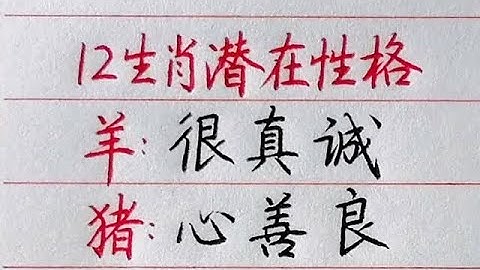 12生肖潜在性格
羊:很真诚
猪:心善良